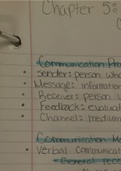 Chapter 5:
Communication Pro
sender: person who
Message: informatio
Receiver: person
Feedback: evalua
Channel: medium
Communication Me
Verbal Communicat
General